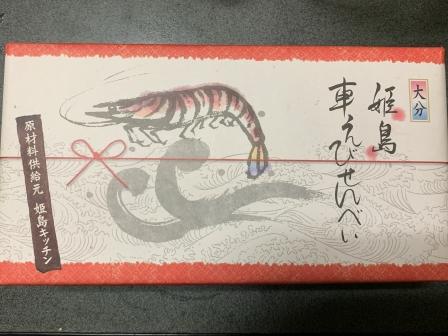 大分
姫島
車えびせんべい
原材料供給元 姫島キッチン